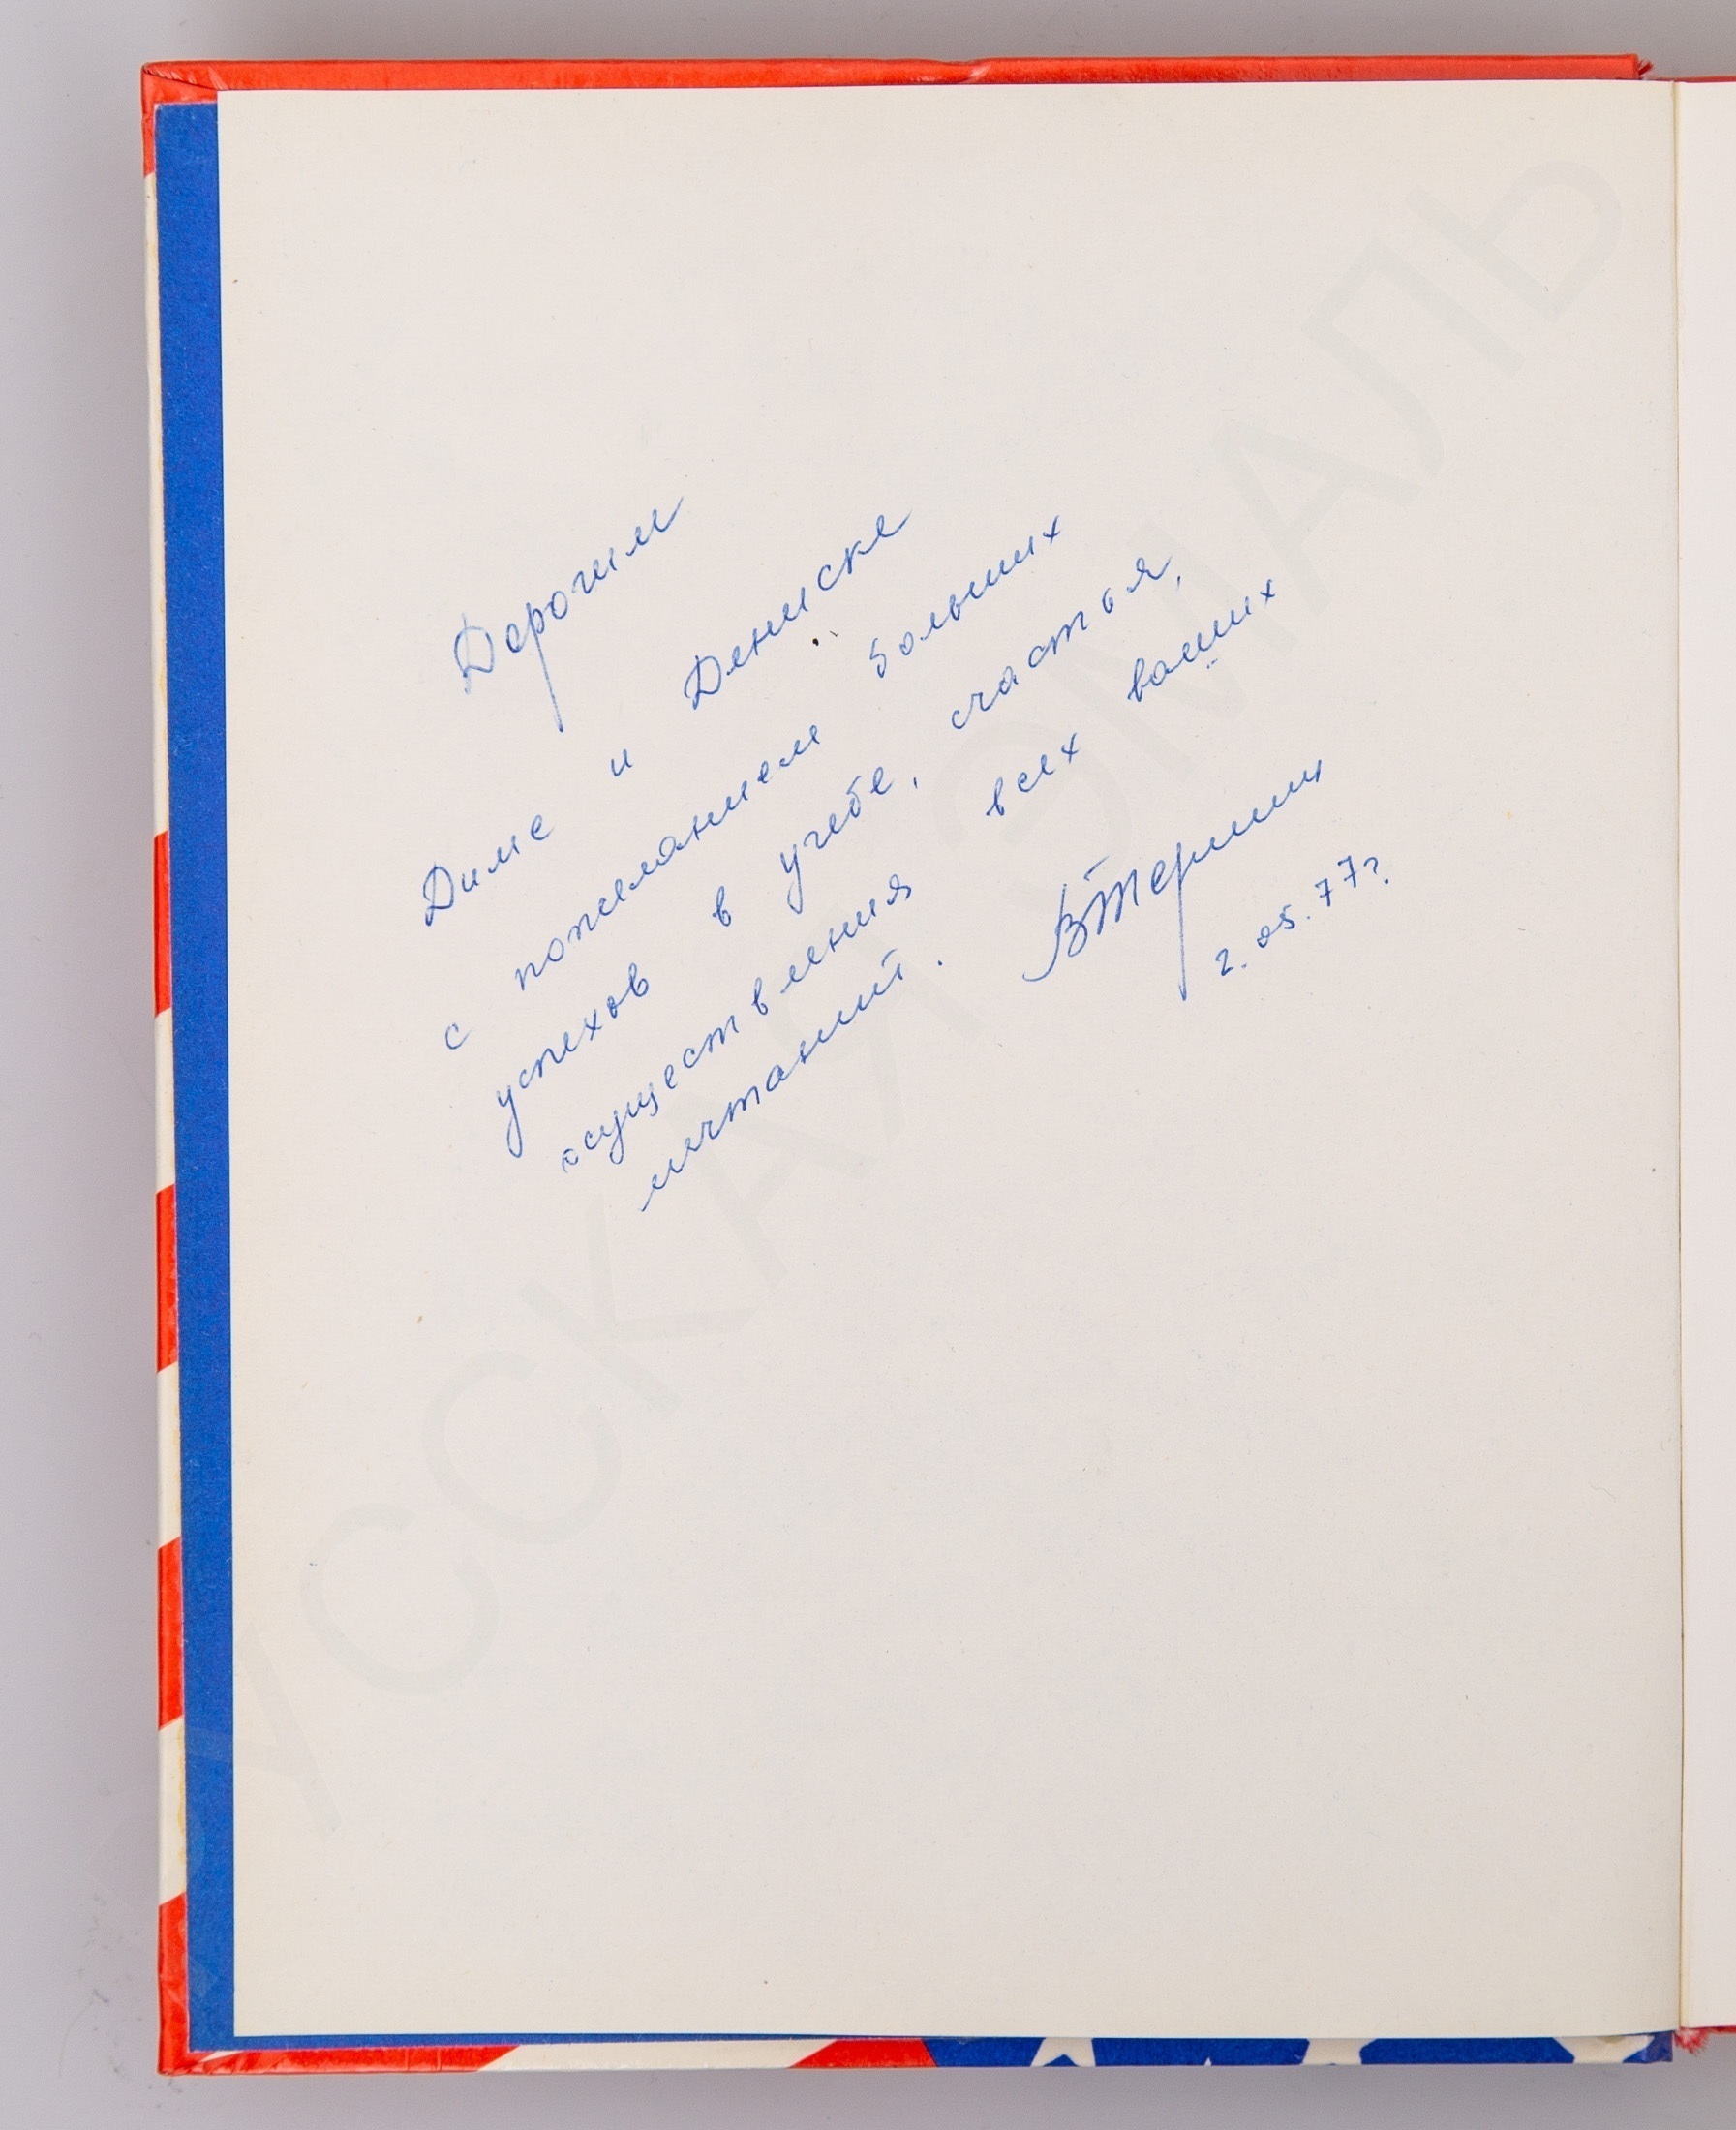 Дорогим
Диме и Дениске
с пожеланием больших
успехов в учебе, счастья,
осуществления всех ваших
мечтаний.
2.05.77г.
РУССКАЯ ЭМАЛЬ